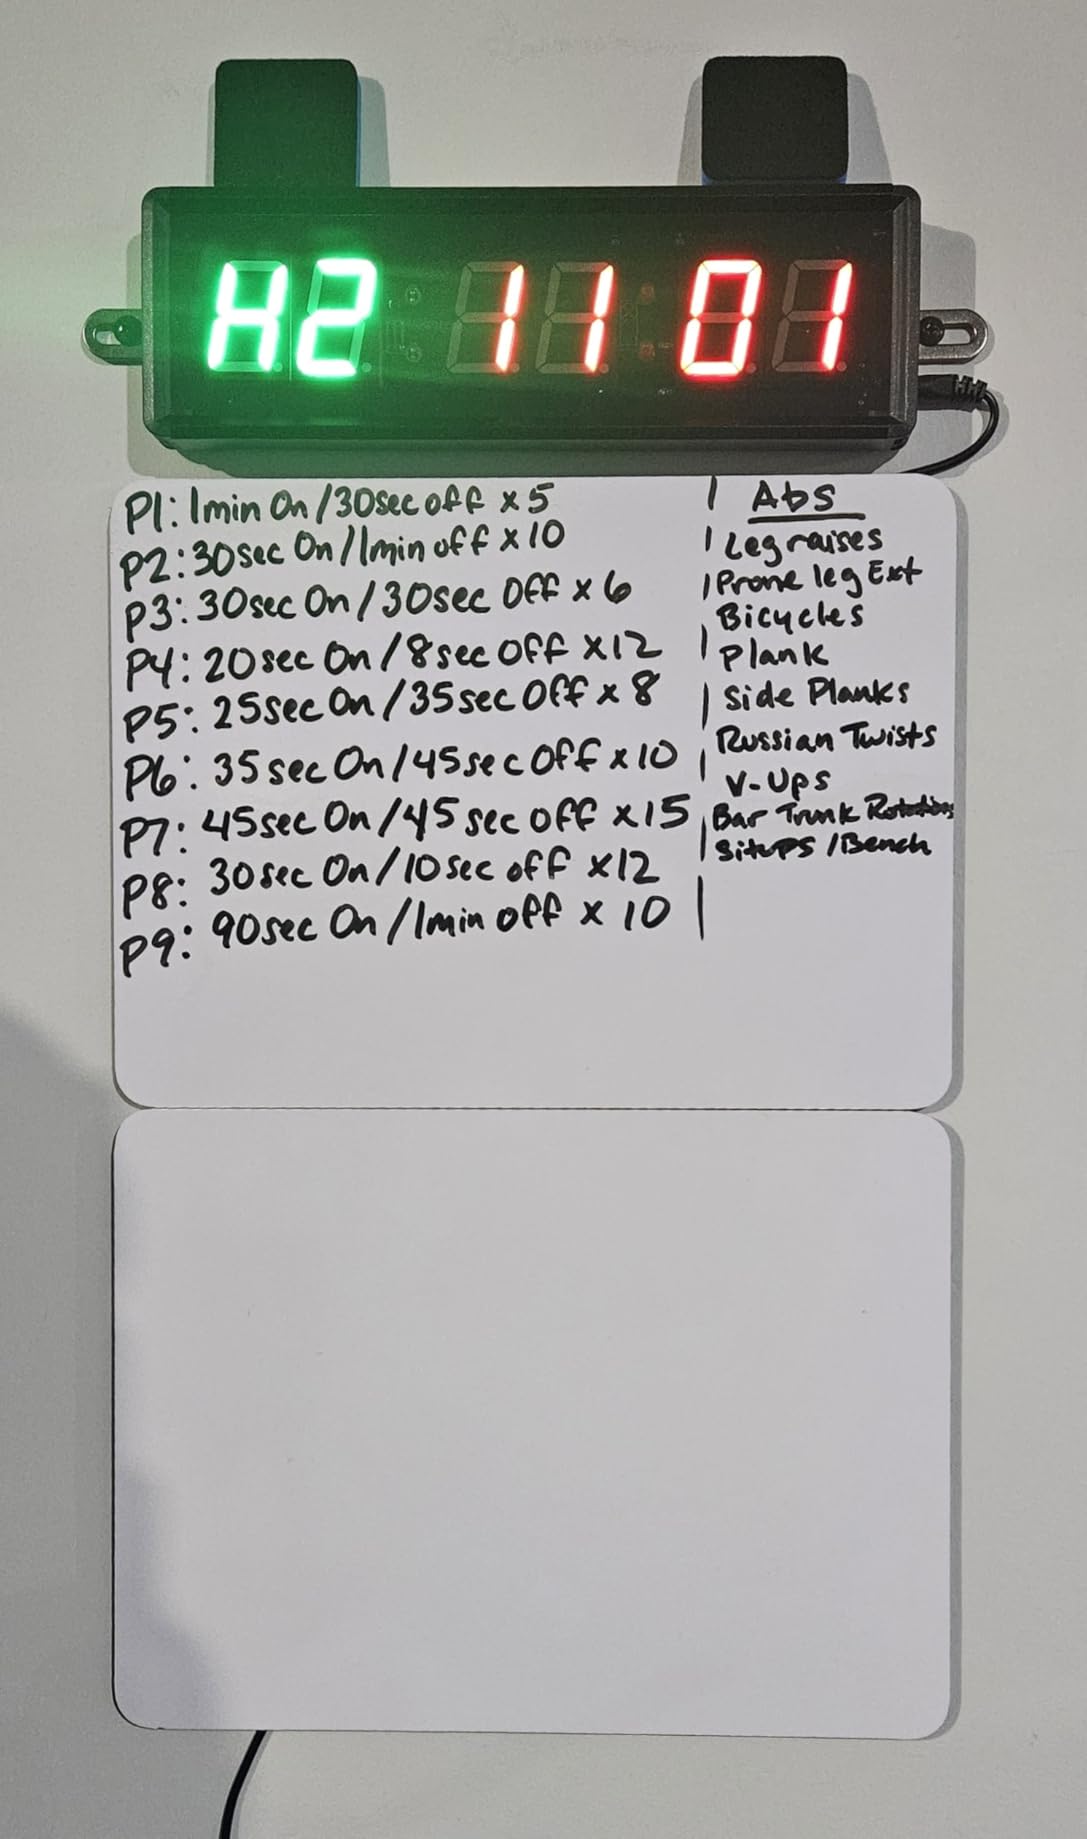 H2 11 01
P1: 1min On/30sec off x 5
P2: 30sec On/1min off x 10
P3: 30sec On/30sec Off x 6
P4: 20sec On/8sec Off x12
P5: 25sec On/35sec Off x 8
P6: 35sec On/45sec Off x 10
P7: 45sec On/45sec off x15
P8: 30sec On/10sec off x12
P9: 90sec On/1min off x 10
Abs
Leg raises
Prone leg Ext
Bicycles
Plank
Side Planks
Russian Twists
V-Ups
Bar Trunk Rotations
Situps /Bench